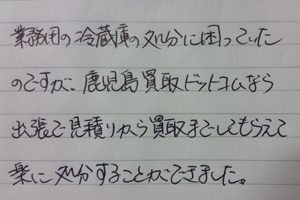 業務用の冷蔵庫の処分に困っていた
のですが、鹿児島買取ドットコムなら
出張で見積りから買取までしてもらえて
楽に処分することができました。